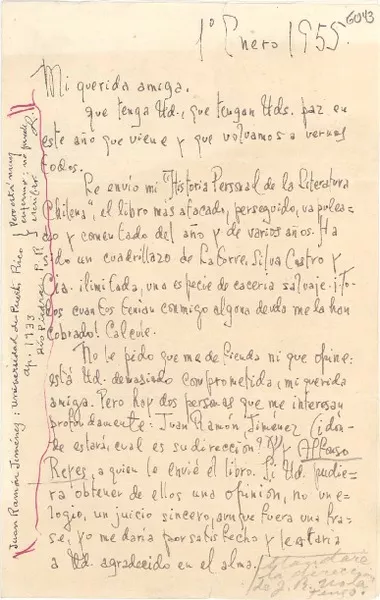 6043
1º Enero 1955.
Mi querida amiga.
que tenga Ud., que tengan Uds. paz en
este año que viene y que volvamos a vernos
todos.
Le envío mi "Historia Personal de la Literatura
Chilena", el libro más atacado, perseguido, vapulea-
do y comentado del año y de varios años. Ha
sido un cuadrillazo de Latorre, Silva Castro y
Cía. ilimitada, una especie de cacería salvaje. ¡To-
dos cuantos tenían conmigo alguna deuda me la han
cobrado! Calcule.
No le pido que me defienda ni que opine:
está Ud. demasiado comprometida, mi querida
amiga. Pero hay dos personas que me interesan
profundamente: Juan Ramón Jiménez (¿dón-
de estará, cual es su dirección?) y Alfonso
Reyes, a quien le envié el libro. Si Ud. pudie-
ra obtener de ellos una opinión, no un e-
logio, un juicio sincero, aunque fuera una fra-
se, yo me daría por satisfecho y le estaría
a Ud. agradecido en el alma.
Juan Ramón Jiménez: Universidad de Puerto Rico
ap. 1933
Río Piedras, P.R.
Pero está muy
enfermo; no puede
escribir